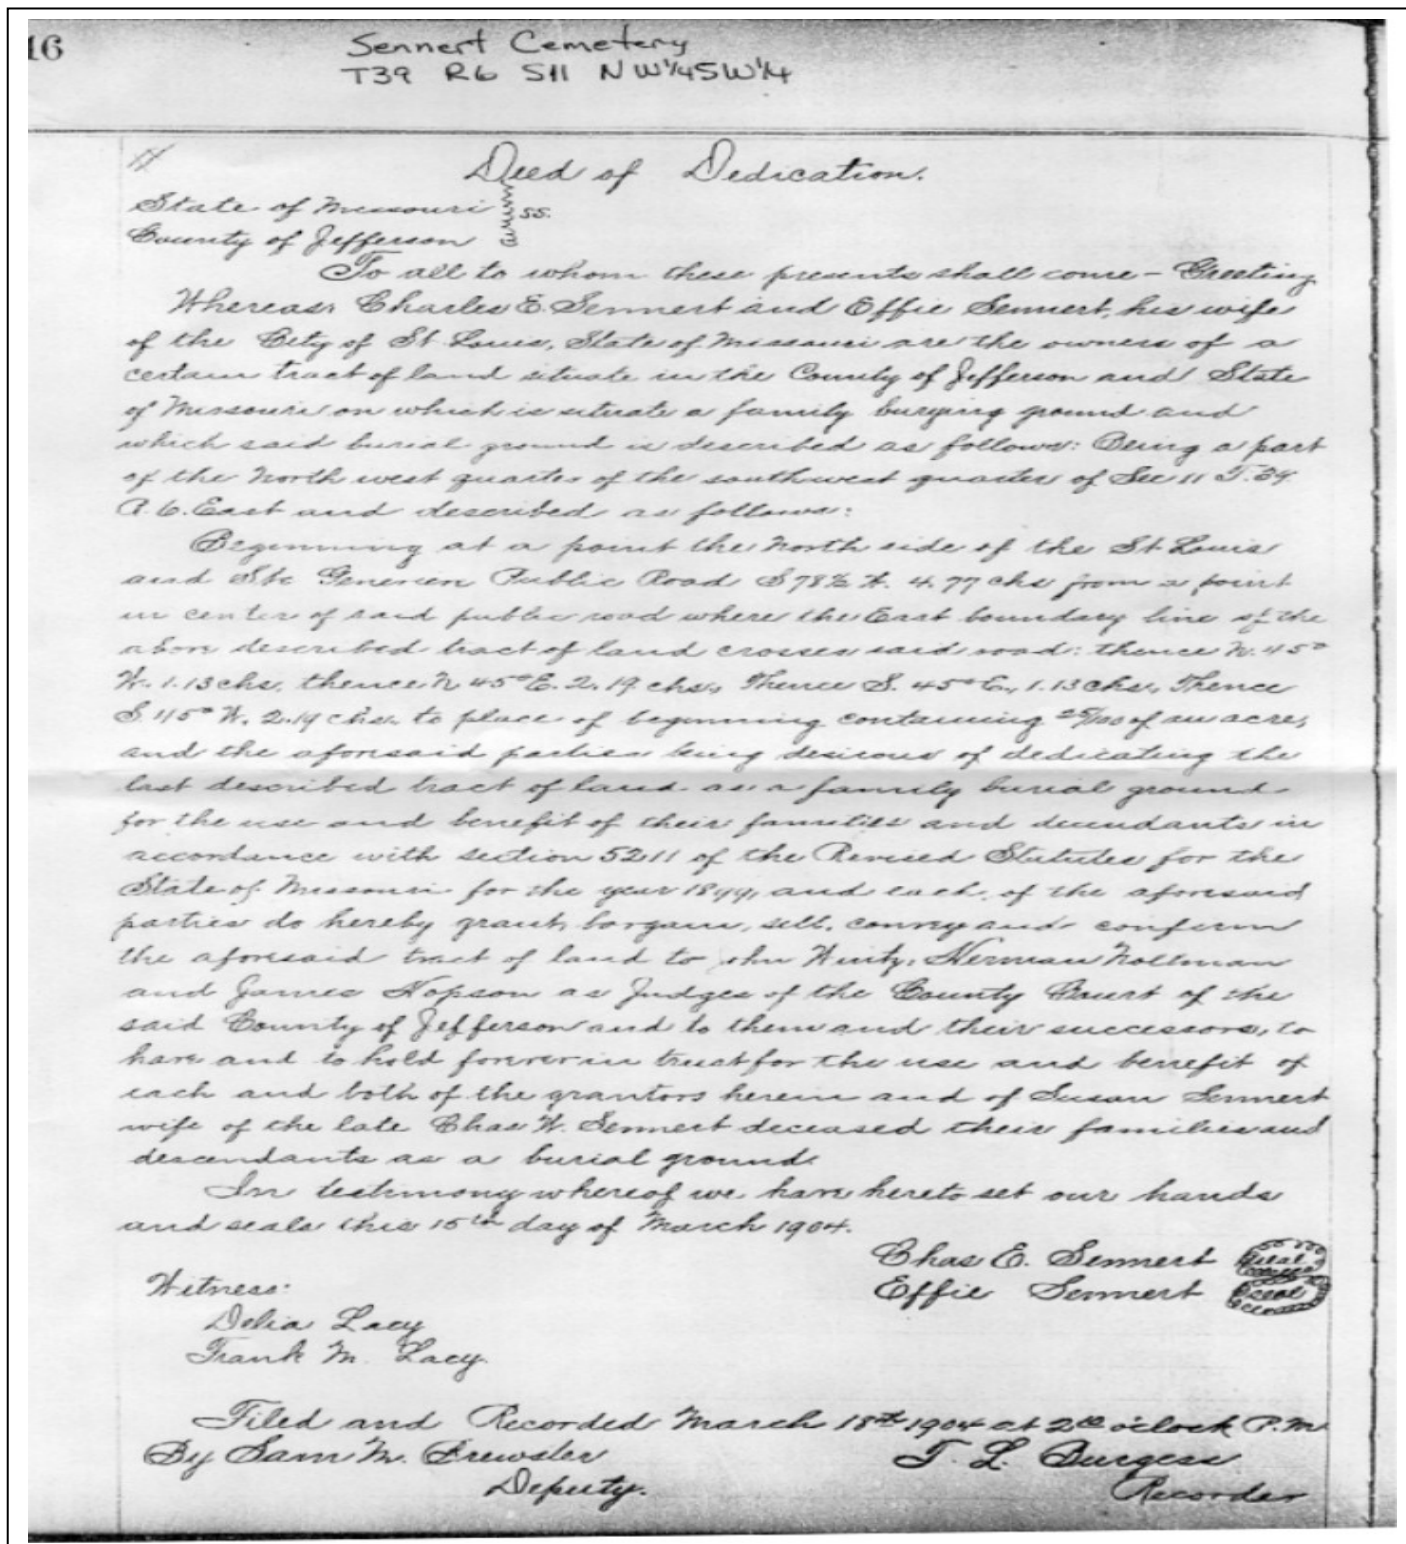 16
Sennert Cemetery
T39 R6 S11 NW¼SW¼
Deed of Dedication.
State of Missouri
ss.
County of Jefferson
To all to whom these presents shall come - Greeting
Whereas Charles E. Sennert and Effie Sennert, his wife
of the City of St Louis, State of Missouri are the owners of a
certain tract of land situate in the County of Jefferson and State
of Missouri on which is situate a family burying ground and
which said burial ground is described as follows: Being a part
of the North west quarter of the southwest quarter of Sec 11 T. 39
R. 6. East and described as follows:
Beginning at a point the North side of the St. Louis
and Ste Public Road S 78½ W. 4.77 chs from a point
in center of said public road where the East boundary line of the
above described tract of land crosses said road: thence N. 45°
W. 1.13 chs, thence N 45° E. 2.19 chs, Thence S. 45° E., 1.13 chs, Thence
S 45° W. 2.19 chs. to place of beginning containing 25/100 of an acre,
and the aforesaid parties being desirous of dedicating the
last described tract of land as a family burial ground
for the use and benefit of their families and decendants in
accordance with section 5211 of the Revised Statutes for the
State of Missouri for the year 1899, and each of the aforesaid
parties do hereby grant, bargain, sell, convey and confirm
the aforesaid tract of land to Herman
and James Hopson as Judges of the County Court of the
said County of Jefferson and to them and their successors, to
have and to hold forever in trust for the use and benefit of
each and both of the grantors herein and of Susan Sennert
wife of the late Chas W. Sennert deceased their families and
descendants as a burial ground.
In testimony whereof we have hereto set our hands
and seals this 15th day of March 1904.
Chas E. Sennert Seal
Effie Sennert Seal
Witness:
Delia Lacy
Frank M. Lacy.
Filed and Recorded March 18th 1904 at 2 o'clock P.M
By Sam M. Brewster
Deputy.
T. L. Burgess
Recorder